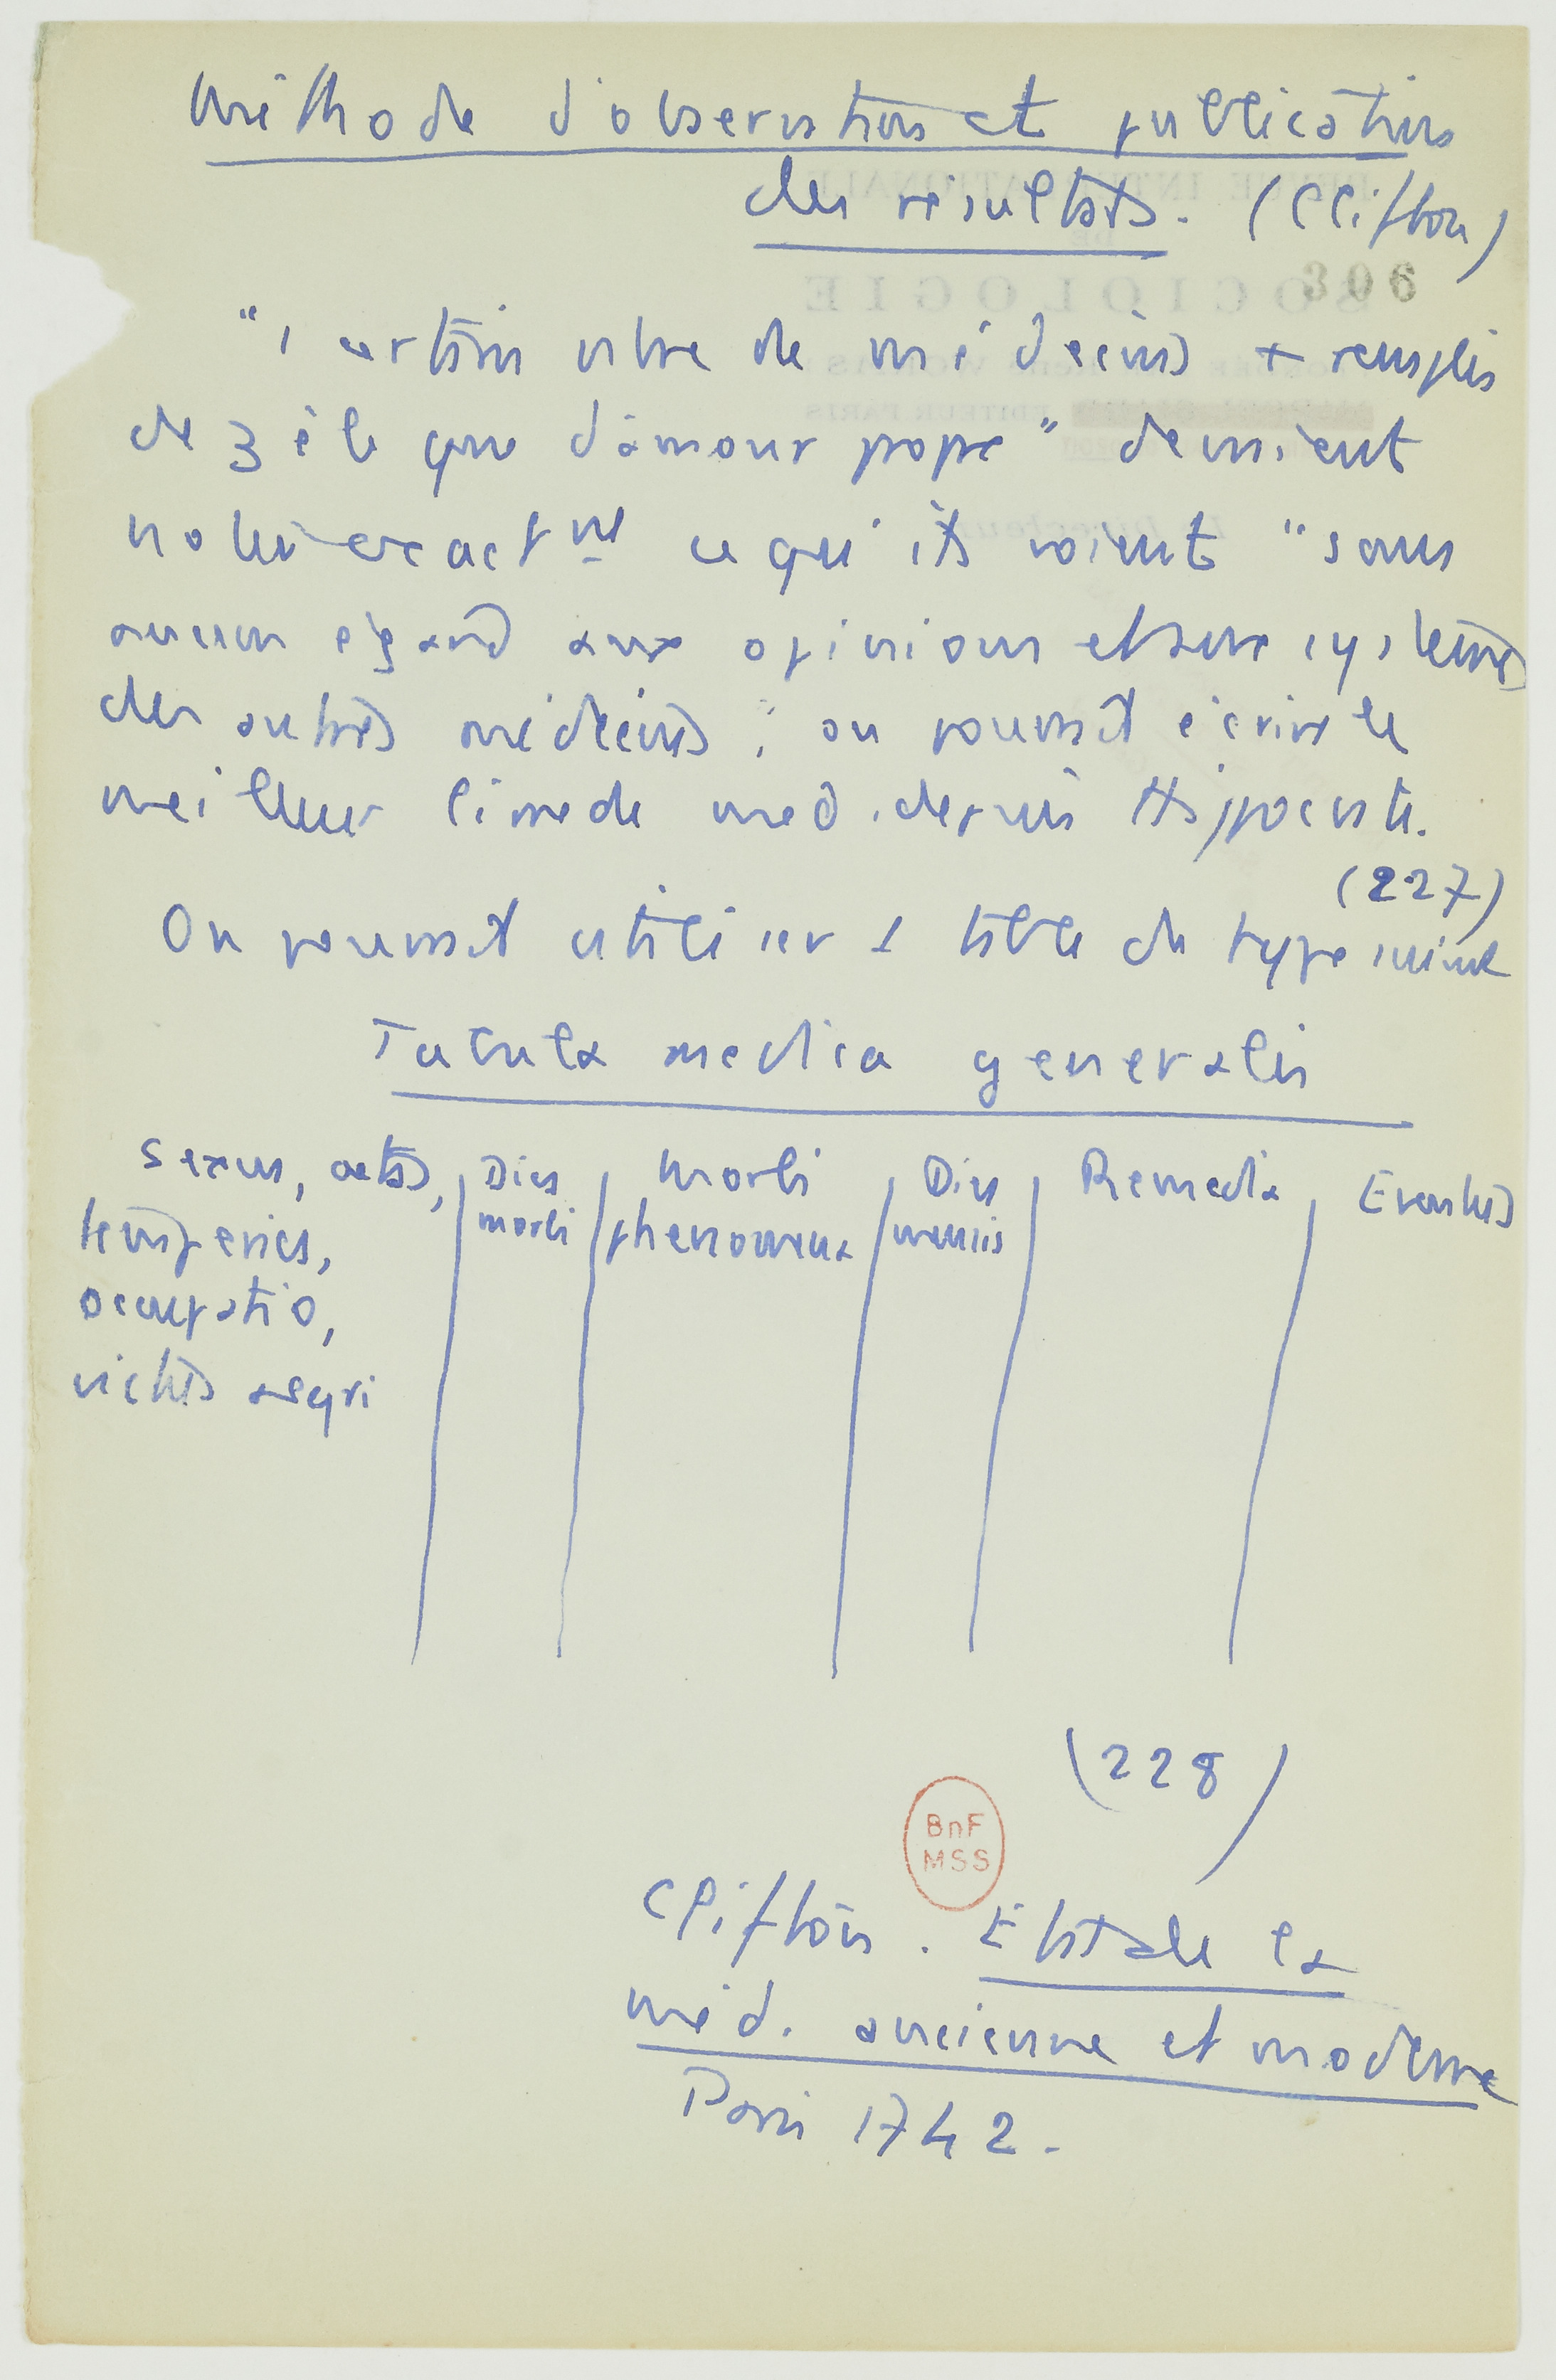 Méthode d'observation et publication
des résultats. (Clifton)
306
"1 certain nbre de médecins + remplis
de zèle que d'amour propre" devraient
noter exactmt ce qu'ils voient "sans
aucun égard aux opinions et aux systèmes
des autres médecins; on pourrait écrire le
meilleur livre de méd. depuis Hippocrate.
(227)
On pourrait utiliser 1 table du type suivant
Tabula medica generalis
Sexus, aetas, | Dies | Morbi | Dies | Remedia | Eventus
temperies, morbi phenomena mensis
occupatio,
victus aegri
(228)
BnF
MSS
Clifton. Etat de la
méd. ancienne et moderne
Paris 1742.